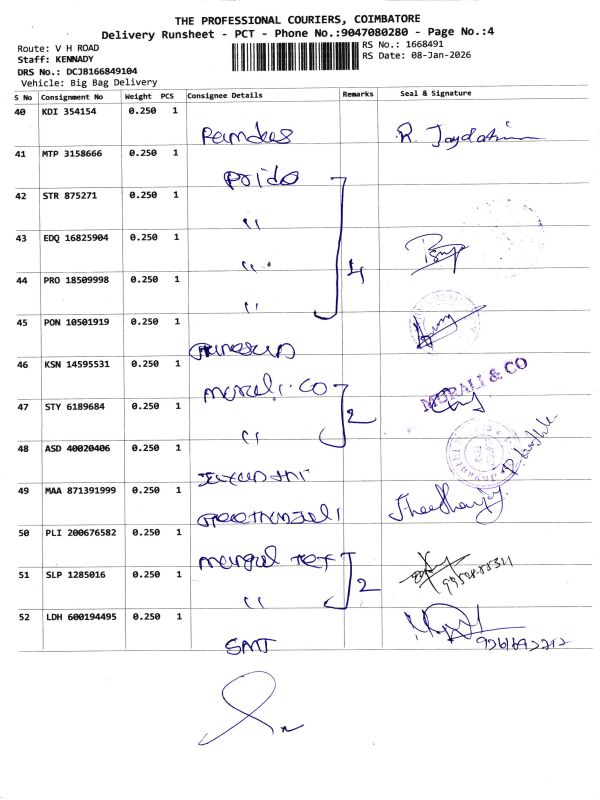 THE PROFESSIONAL COURIERS, COIMBATORE
Delivery Runsheet - PCT - Phone No.:9047080280 - Page No.:4
Route: V H ROAD
RS No.: 1668491
Staff: KENNADY
RS Date: 08-Jan-2026
DRS No.: DCJB166849104
Vehicle: Big Bag Delivery
S No Consignment No Weight PCS Consignee Details Remarks Seal & Signature
40 KDI 354154 0.250 1
Ramdas
41 MTP 3158666 0.250 1
prido
42 STR 875271 0.250 1
"
43 EDQ 16825904 0.250 1
" 4
44 PRO 18509998 0.250 1
"
45 PON 10501919 0.250 1
46 KSN 14595531 0.250 1
murali.co MURALI & CO
47 STY 6189684 0.250 1 2
"
48 ASD 40020406 0.250 1
49 MAA 871391999 0.250 1
50 PLI 200676582 0.250 1
mangal Tex
51 SLP 1285016 0.250 1 2
"
52 LDH 600194495 0.250 1
SMT